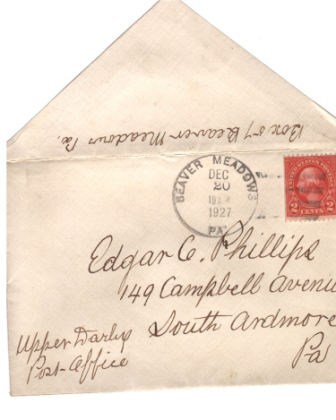 Box 57 Beaver Meadows Pa.
BEAVER MEADOWS
DEC
20
1927
PA.
UNITED STATES POSTAGE
2 CENTS 2
Edgar C. Phillips
149 Campbell Avenue
South Ardmore
Pa
Upper Darby
Post-Office